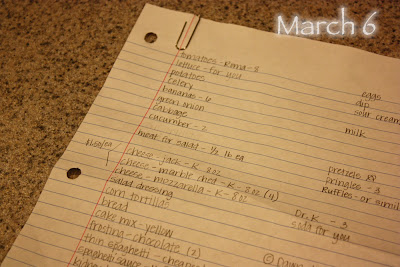 March 6
tomatoes - Roma - 8
lettuce - for you
potatoes
celery
bananas - 6
green onion
cabbage
cucumber - 2
meat for salad - 1/2 lb ea
cheese - jack - K - 8oz
cheese - marble ched - K - 8oz
cheese - mozzarella - K - 8oz
salad dressing
corn tortillas
bread
cake mix - yellow
frosting - chocolate (2)
thin spaghetti -
spaghetti sauce -
eggs
dip
sour cream
milk
pretzels
Pringles - 3
Ruffles - or simil
Dr. K - 3
soda for you